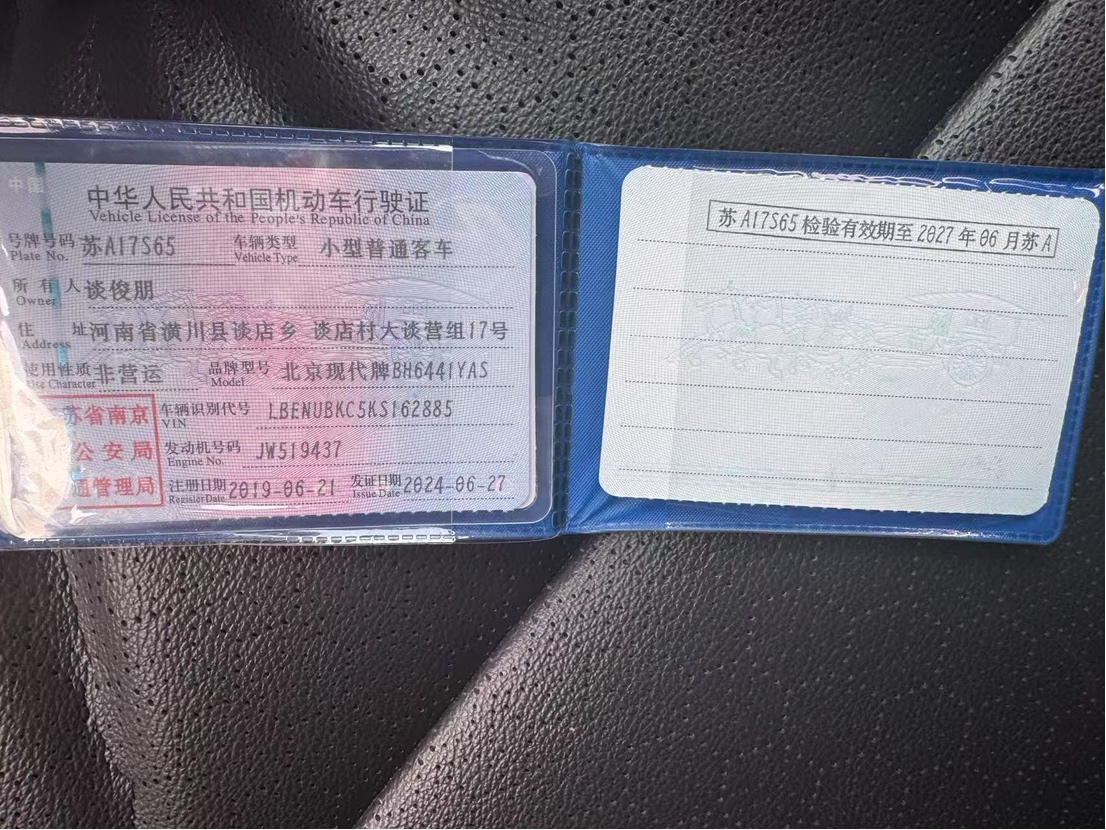 中国
中华人民共和国机动车行驶证
Vehicle License of the People's Republic of China
号牌号码 苏A17S65 车辆类型 小型普通客车
Plate No. Vehicle Type
所有人 谈俊朋
Owner
住址 河南省潢川县谈店乡 谈店村大谈营组17号
Address
使用性质 非营运 品牌型号 北京现代牌BH6441YAS
Use Character Model
苏省南京 车辆识别代号 LBENUBKC5KS162885
VIN
公安局 发动机号码 JW519437
Engine No.
通管理局 注册日期 2019-06-21 发证日期 2024-06-27
Register Date Issue Date
苏A17S65检验有效期至2027年06月苏A